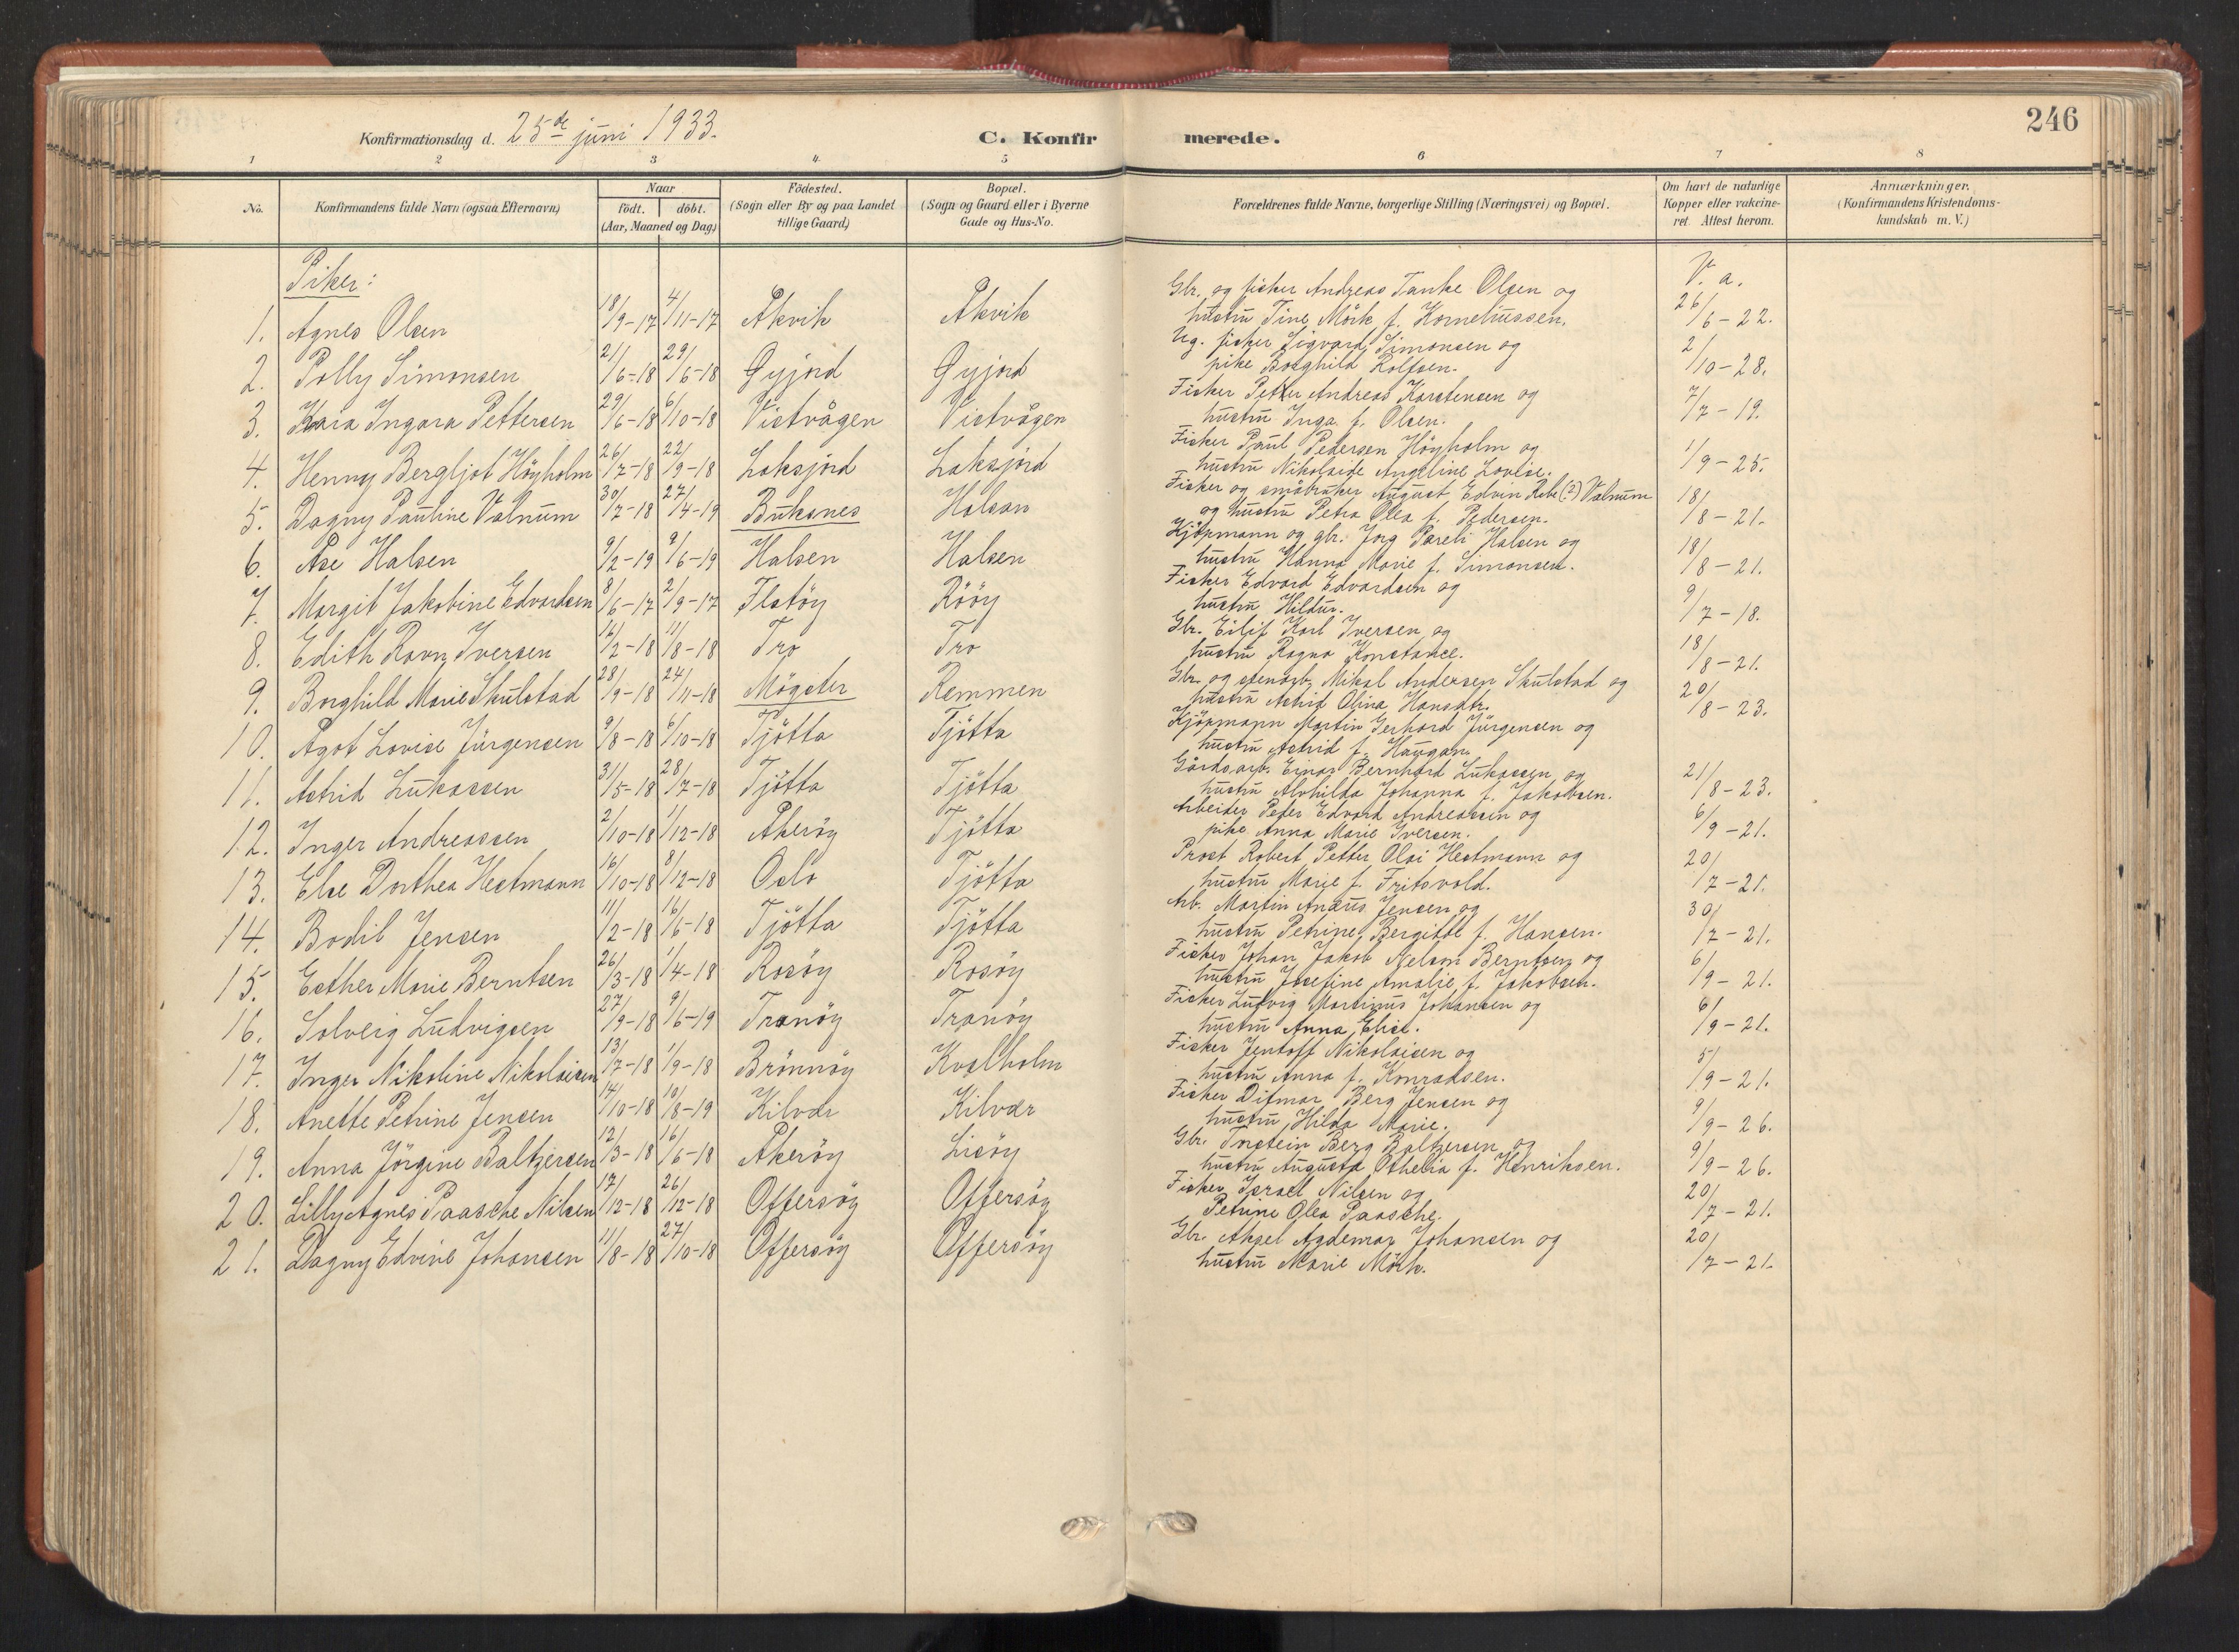 246
Konfirmationsdag d. 25de juni 1933.
C. Konfirmerede.
1 2 3 4 5 6 7 8
No.
Konfirmandens fulde Navn (ogsaa Efternavn)
Naar
födt. döbt.
(Aar, Maaned og Dag)
Födested.
(Sogn eller By og paa Landet
tillige Gaard)
Bopæl.
(Sogn og Gaard eller i Byerne
Gade og Hus-No.
Forældrenes fulde Navne, borgerlige Stilling (Næringsvei) og Bopæl.
Om havt de naturlige
Kopper eller vakcine-
ret. Attest herom.
Anmærkninger.
(Konfirmandens Kristendoms-
kundskab m. V.)
Piker:
V. a.
1. Agnes Olsen 18/9-17 4/11-17 Åkvik Åkvik
Gbr. og fisker Andreas Tanke Olsen og
hustru Tine Mörk f. Korneliussen.
26/6-22.
2. Polly Simonsen 21/6-18 29/6-18 Øyjord Øyjord
Ug. fisker Sigvard Simonsen og
pike Borghild Rolfsen.
2/10-28.
3. Kara Ingara Pettersen 29/6-18 6/10-18 Vistvågen Vistvågen
Fisker Petter Andreas Karstensen og
hustru Inga f. Olsen.
7/7-19.
4. Henny Bergljot Höyholm 26/7-18 22/9-18 Laksjord Laksjord
Fisker Paul Pedersen Höyholm og
hustru Nikolaide Angeline Lovise.
1/9-25.
5. Dagny Pauline Valnum 30/7-18 27/4-19 Buksnes Halsan
Fisker og småbruker August Edvin Rebe (?) Valnum
og hustru Petra Olea f. Pedersen.
18/8-21.
6. Åse Halsen 9/2-19 9/6-19 Halsen Halsen
Kjöpmann og gbr. Jorg Pareli Halsen og
hustru Hanna Marie f. Simonsen.
18/8-21.
7. Margit Jakobine Edvardsen 8/6-17 2/9-17 Flatöy Rööy
Fisker Edvard Edvardsen og
hustru Hildur.
9/7-18.
8. Edith Ravn Iversen 16/2-18 11/8-18 Tro Tro
Gbr. Eilif Karl Iversen og
hustru Ragna Konstanse.
18/8-21.
9. Borghild Marie Skulstad 28/9-18 24/11-18 Mögster Remmen
Gbr. og stenarb. Mikal Andersen Skulstad og
hustru Astrid Olina Hansdtr.
20/8-23.
10. Ågot Lovise Jürgensen 9/8-18 6/10-18 Tjötta Tjötta
Kjöpmann Martin Gerhard Jürgensen og
hustru Astrid f. Haugan.
11. Astrid Lukassen 31/5-18 28/7-18 Tjötta Tjötta
Gårdsarb. Einar Bernhard Lukassen og
hustru Alvhilda Johanna f. Jakobsen.
21/8-23.
12. Inger Andreassen 2/10-18 1/12-18 Åkeröy Tjötta
Arbeider Peter Edvard Andreassen og
pike Anna Marie Iversen.
6/9-21.
13. Else Dorthea Hestmann 16/10-18 8/12-18 Oslo Tjötta
Prost Robert Petter Olai Hestmann og
hustru Marie f. Fritsvold.
20/7-21.
14. Bodil Jensen 11/2-18 16/6-18 Tjötta Tjötta
Arb. Martin Anäus Jensen og
hustru Petrine Bergitte f. Hansen.
30/7-21.
15. Esther Marie Berntsen 26/3-18 1/4-18 Rosöy Rosöy
Fisker Johan Jakob Nelson Berntsen og
hustru Josefine Amalie f. Jakobsen.
6/9-21.
16. Solveig Ludvigsen 27/9-18 9/6-19 Tranöy Tranöy
Fisker Ludvig Martinus Johansen og
hustru Anna Elise.
6/9-21.
17. Inger Nikoline Nikolaisen 13/7-18 1/9-18 Brönnöy Kvalholm
Fisker Jentoft Nikolaisen og
hustru Anna f. Konradsen.
5/9-21.
18. Anette Petrine Jensen 14/10-18 10/8-19 Kilvær Kilvær
Fisker Ditmar Berg Jensen og
hustru Hilda Marie.
9/9-26.
19. Anna Jörgine Baltzersen 12/3-18 16/6-18 Åkeröy Lisöy
Gbr. Torstein Berg Baltzersen og
hustru Augusta Othelia f. Henriksen.
9/9-26.
20. Lilly Agnes Paasche Nilsen 17/12-18 26/12-18 Offersöy Offersöy
Fisker Israel Nilsen og
Petrine Olea Paasche.
20/7-21.
21. Dagny Edvine Johansen 11/8-18 27/10-18 Offersöy Offersöy
Gbr. Aksel Agdemar Johansen og
hustru Marie Mörk.
20/7-21.